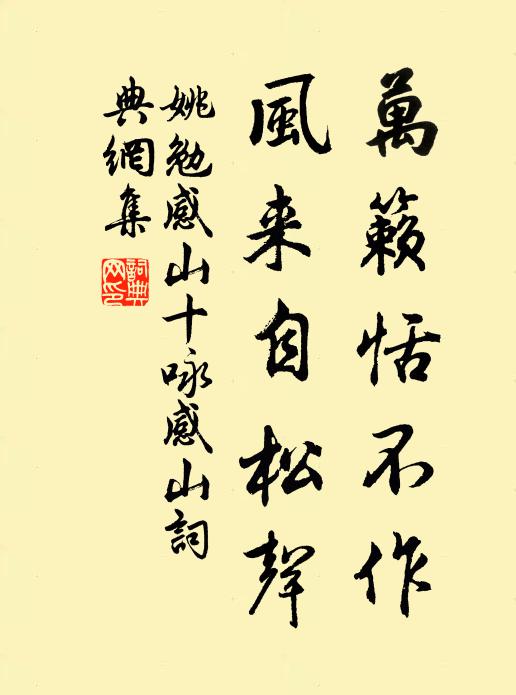 萬籟恬不作
風来自松聲
姚勉感山十咏感山詞
典網集
詞典网印